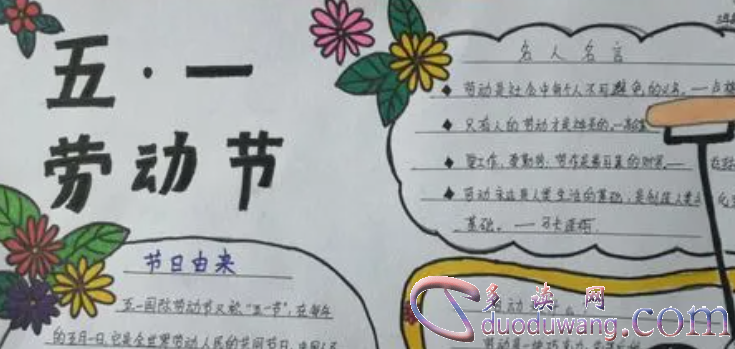 五·一
劳动节
名人名言
劳动是社会中每个人不可避免的义务。——卢梭
只有人的劳动才是神圣的。——高尔基
爱工作，爱勤劳，劳作是最可靠的财富。——
劳动永远是人类生活的基础，是创造人类文化
基础。——马卡连柯
节日由来
五一国际劳动节又称"五一节"，在每年
的五月一日。它是全世界劳动人民的共同节日。
劳动
劳动是
多读网
duoduwang.com